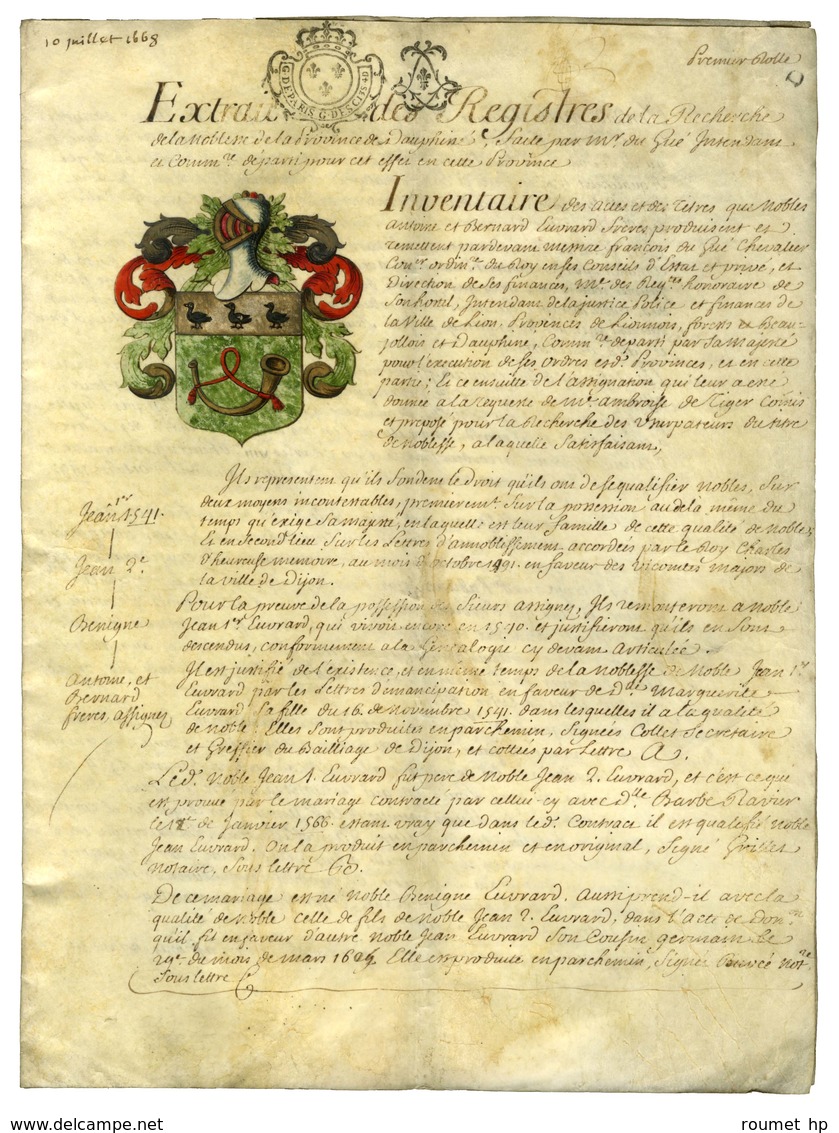 10 juillet 1668
Premier Rolle
G. DE PARIS. G. DES CUIRS
Extrait des Registres de la Recherche
de la Noblesse de la province de Dauphiné, faite par Mr. du Gué Intendant
et Commre. departi pour cet effet en cette Province
Inventaire des actes et des titres que Nobles
Antoine et Bernard Euvrard freres produisent et
remettent pardevant messire françois du Gué Chevalier
Conr. ordinre. du Roy en ses Conseils d'Estat et privé, et
Direction de ses finances, Me. des Reqtes. honoraire de
son hotel, Intendant de la justice Police et finances de
la Ville de Lion, Provinces de Lionnois, forets et Beau-
jollois et Dauphiné, Commre. departi par sa majesté
pour l'execution de ses ordres esd. Provinces, et en cette
partie; Et ce ensuitte de l'assignation qui leur a esté
donnée a la requeste de Me. ambroise de Tiger Comis
et preposé pour la Recherche des Usurpateurs du titre
de Noblesse, a laquelle satisfaisant,
Ils representent qu'ils fondent le droit qu'ils ont de se qualifier nobles, sur
deux moyens incontestables, premieremt. sur la possession au dela même du
temps qu'exige sa majesté, en laquelle est leur famille de cette qualité de noble;
Et en second lieu sur les Lettres d'annoblissement accordées par le Roy Charles
d'heureuse memoire, au mois d'octobre 1491. en faveur des vicomtes majors de
la ville de Dijon.
Jean 1er. 1541.
Jean 2e.
Benigne
Antoine, et
Bernard
freres, assignez
Pour la preuve de la possession des sieurs assignez, Ils remonteront a Noble
Jean 1er. Euvrard, qui vivoit encore en 1540. et justifieront qu'ils en sont
descendus, conformement a la Genealogie cy devant articulée.
Il est justifié de l'existence, et en même temps de la noblesse de Noble Jean 1er.
Euvrard par les Lettres d'emancipation en faveur de dlle. Marguerite
Euvrard sa fille du 16. de Novembre 1541. dans lesquelles il a la qualité
de noble. Elles sont produites en parchemin, signées Collet secretaire
et Greffier du Bailliage de Dijon, et cottées par Lettre A.
Led. Noble Jean 1. Euvrard fut pere de Noble Jean 2. Euvrard, et c'est ce qui
est prouvé par le mariage contracté par cellui-cy avec dlle. Barbe
le de Janvier 1566. estant vray que dans led. Contract il est qualifié Noble
Jean Euvrard. On la produit en parchemin et en original, signé
notaire, sous lettre B.
De ce mariage est né Noble Benigne Euvrard. Aussi prend-il avec la
qualité de noble celle de fils de noble Jean 2. Euvrard, dans l'acte de Don.on
qu'il fit en faveur d'autre noble Jean Euvrard son Cousin germain le
24e. du mois de mars Elle est produite en parchemin, signée notre.
sous lettre C
roumet hp